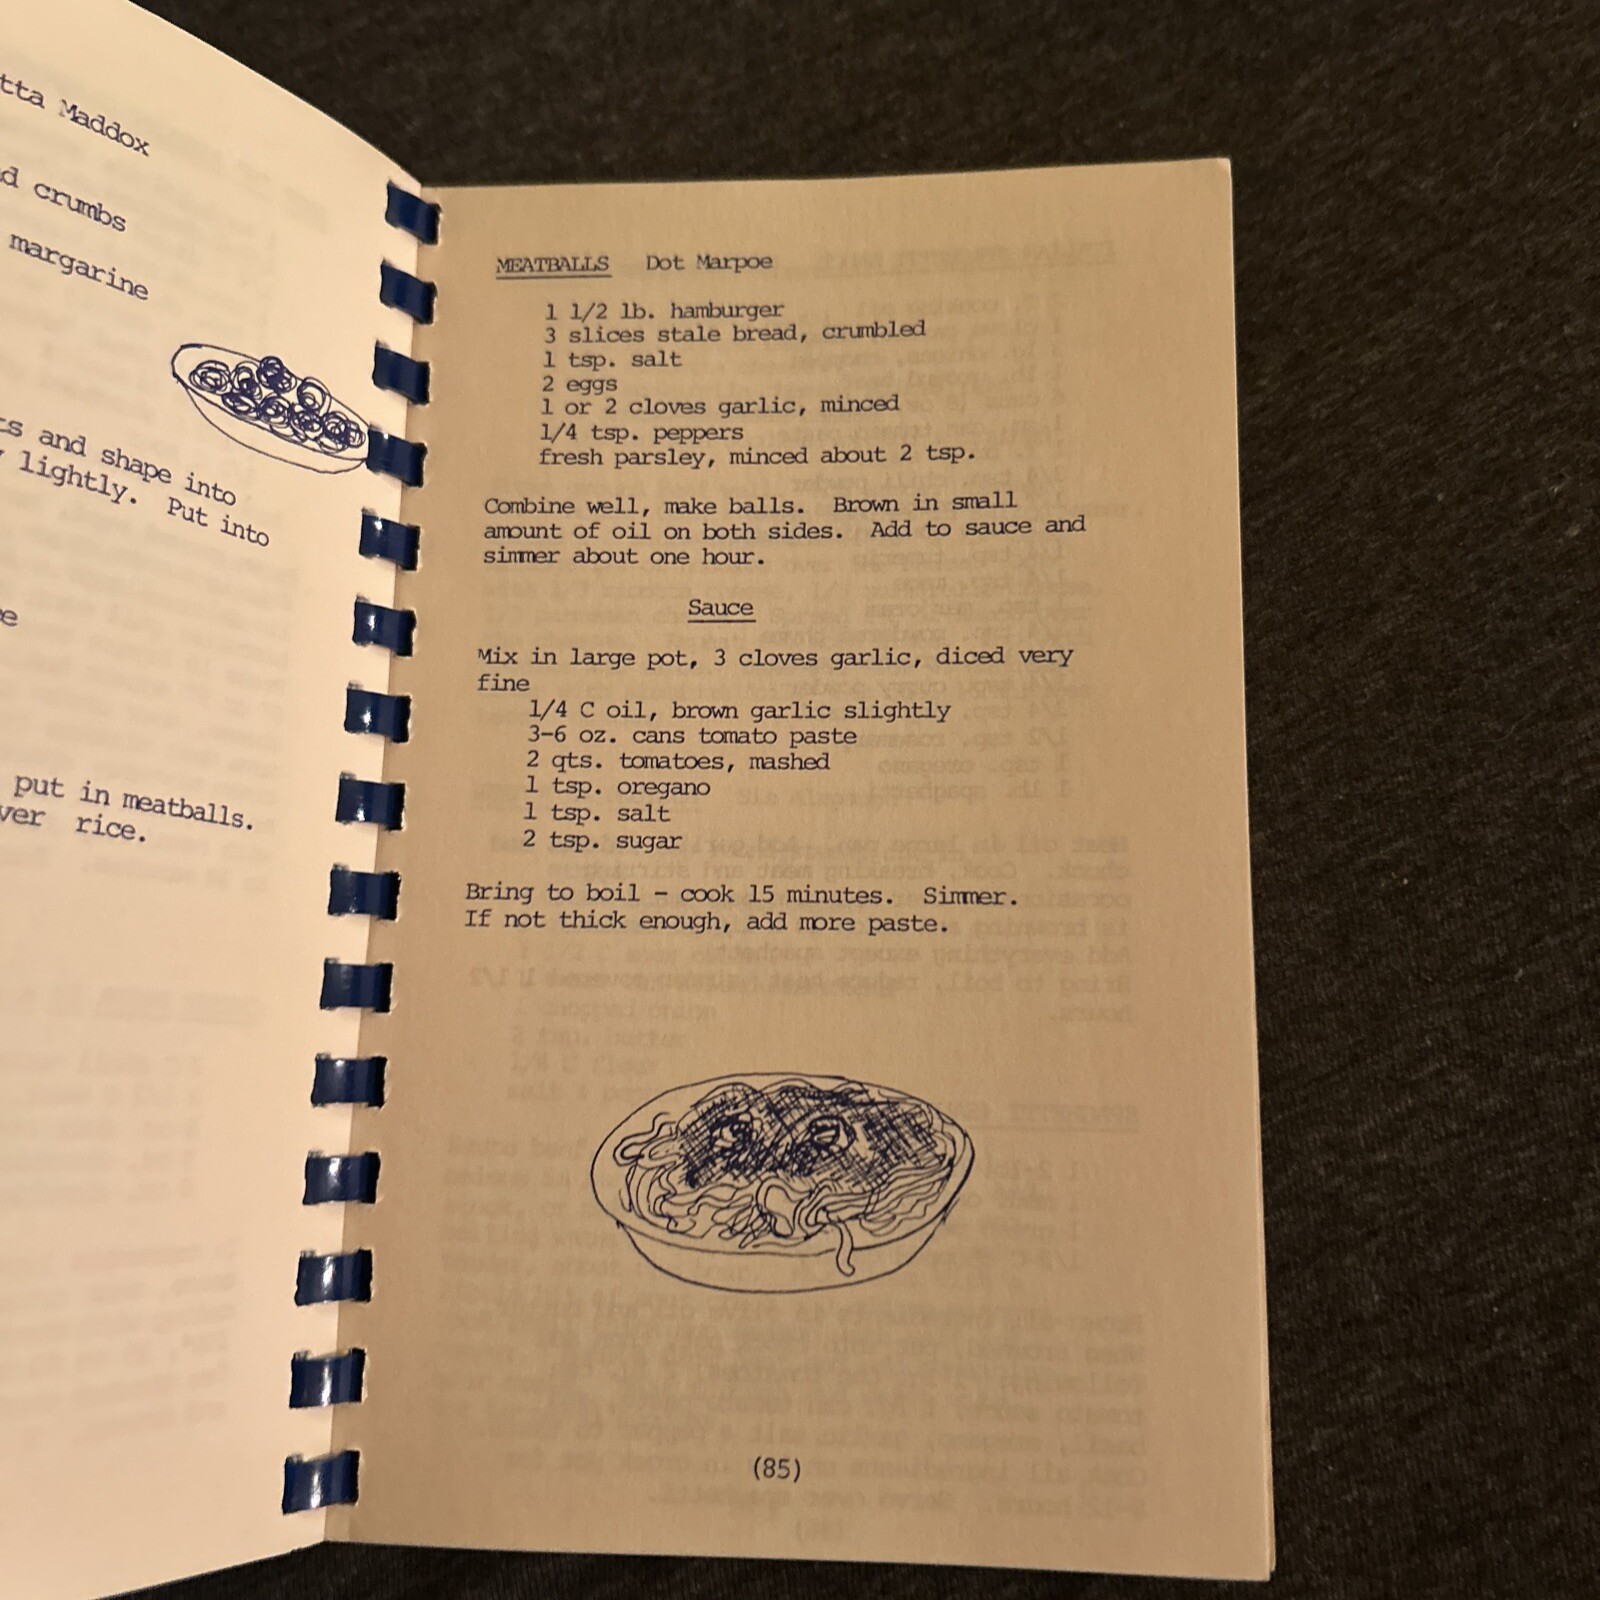 tta Maddox
d crumbs
margarine
ts and shape into
lightly. Put into
e
put in meatballs.
ver rice.
MEATBALLS Dot Marpoe
1 1/2 lb. hamburger
3 slices stale bread, crumbled
1 tsp. salt
2 eggs
1 or 2 cloves garlic, minced
1/4 tsp. peppers
fresh parsley, minced about 2 tsp.
Combine well, make balls. Brown in small
amount of oil on both sides. Add to sauce and
simmer about one hour.
Sauce
Mix in large pot, 3 cloves garlic, diced very
fine
1/4 C oil, brown garlic slightly
3-6 oz. cans tomato paste
2 qts. tomatoes, mashed
1 tsp. oregano
1 tsp. salt
2 tsp. sugar
Bring to boil - cook 15 minutes. Simmer.
If not thick enough, add more paste.
(85)